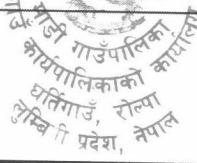 माडी गाउँपालिका
गाउँ कार्यपालिकाको कार्यालय
घर्तिगाउँ, रोल्पा
लुम्बिनी प्रदेश, नेपाल